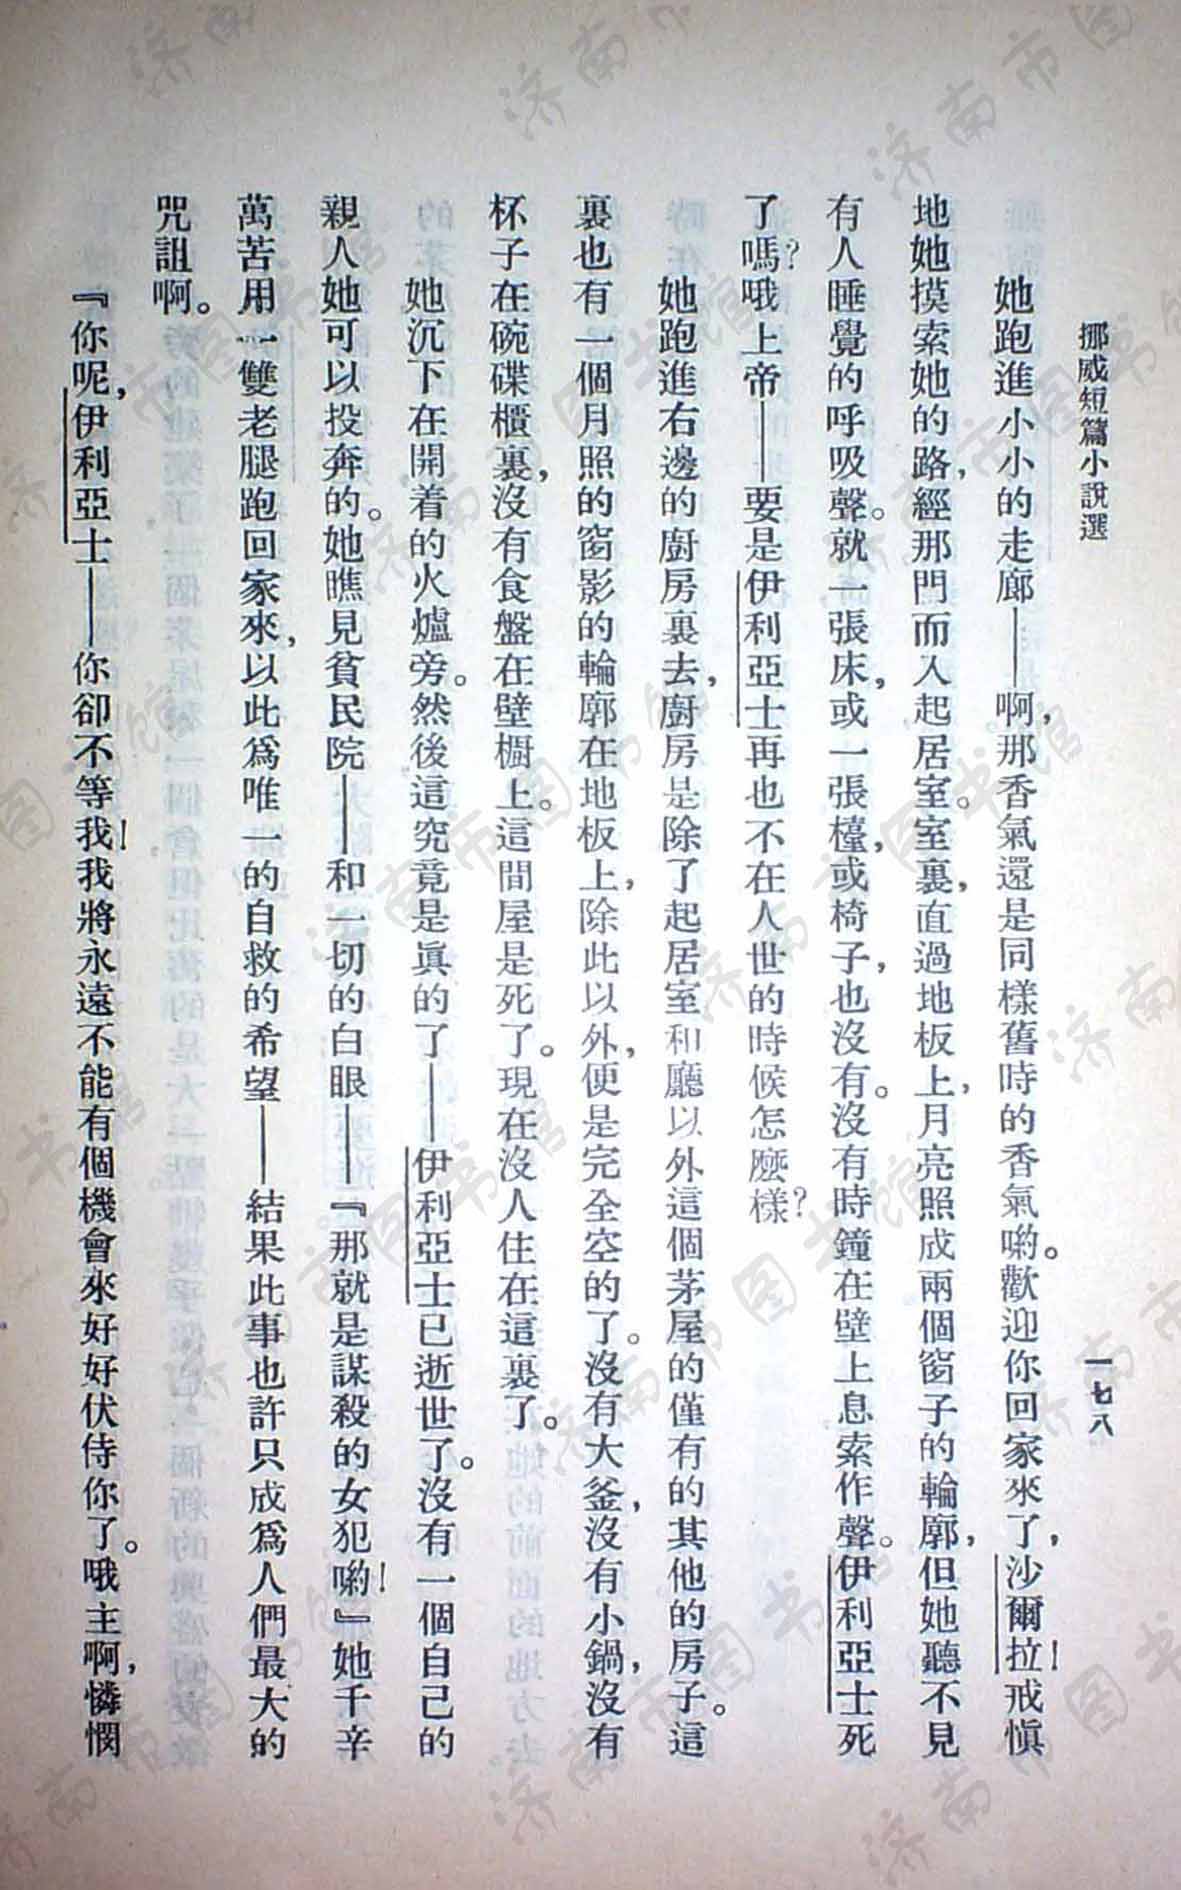 挪威短篇小說選
一七八
她跑進小小的走廊——啊，那香氣還是同樣舊時的香氣喲。歡迎你回家來了，沙爾拉！戒愼
地她摸索她的路，經那門而入起居室。室裏，直過地板上，月亮照成兩個窗子的輪廓，但她聽不見
有人睡覺的呼吸聲。就一張床，或一張檯，或椅子，也沒有。沒有時鐘在壁上息索作聲。伊利亞士死
了嗎？哦上帝——要是伊利亞士再也不在人世的時候怎麽樣？
她跑進右邊的廚房裏去，廚房是除了起居室和廳以外這個茅屋的僅有的其他的房子。這
裏也有一個月照的窗影的輪廓在地板上，除此以外，便是完全空的了。沒有大釜，沒有小鍋，沒有
杯子在碗碟櫃裏，沒有食盤在壁櫥上。這間屋是死了。現在沒人住在這裏了。
她沉下在開着的火爐旁。然後這究竟是眞的了——伊利亞士已逝世了。沒有一個自己的
親人她可以投奔的。她瞧見貧民院——和一切的白眼——『那就是謀殺的女犯喲！』她千辛
萬苦用一雙老腿跑回家來，以此爲唯一的自救的希望——結果此事也許只成爲人們最大的
咒詛啊。
『你呢，伊利亞士——你卻不等我！我將永遠不能有個機會來好好伏侍你了。哦主啊，憐憫
濟南市图书馆